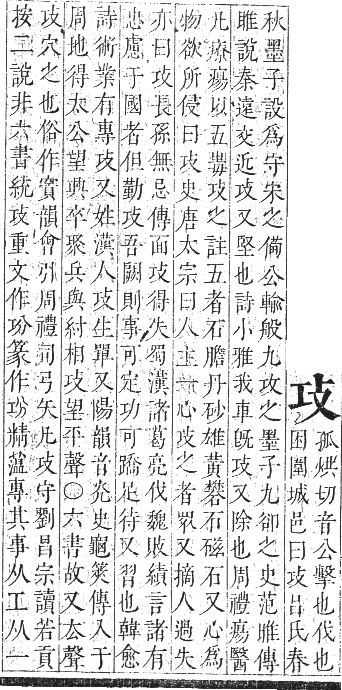 攻
孤烘切音公擊也伐也
困圍城邑曰攻呂氏春
秋墨子設爲守宋之備公輸般九攻之墨子九卻之史范雎傳
雎說秦遠交近攻又堅也詩小雅我車旣攻又除也周禮瘍醫
凡療瘍以五毒攻之註五者石膽丹砂雄黃礬石磁石又心爲
物欲所侵曰攻史唐太宗曰人主一心攻之者眾又摘人過失
亦曰攻長孫無忌傳面攻得失蜀漢諸葛亮伐魏敗績言諸有
忠慮于國者但勤攻吾闕則事可定功可蹻足待又習也韓愈
詩術業有專攻又姓漢人攻生單又陽韻音史龜筴傳入于
周地得太公望興卒聚兵與紂相攻望平聲○六書故又去聲
攻穴之也俗作韻會引周禮司弓矢凡攻守劉昌宗讀若貢
按二說非六書統攻重文作篆作精蘊專其事从工从一